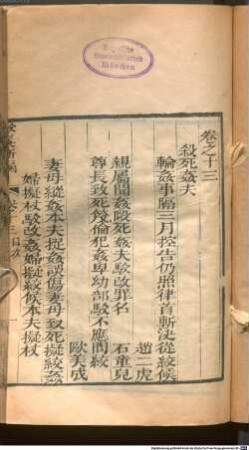 卷之十三
殺死姦夫
輪姦事隔三月控告仍照律首斬決從絞候
趙二虎
親屬聞姦毆死姦夫駁改罪名 石童兒
尊長致死蔑倫犯姦卑幼部駁不應問絞
歐美成
妻母縱姦本夫捉姦誤傷妻母致死擬絞姦
婦擬杖駁改姦婦擬絞候本夫擬杖
卷十三目次
Bayerische
Staatsbibliothek
München